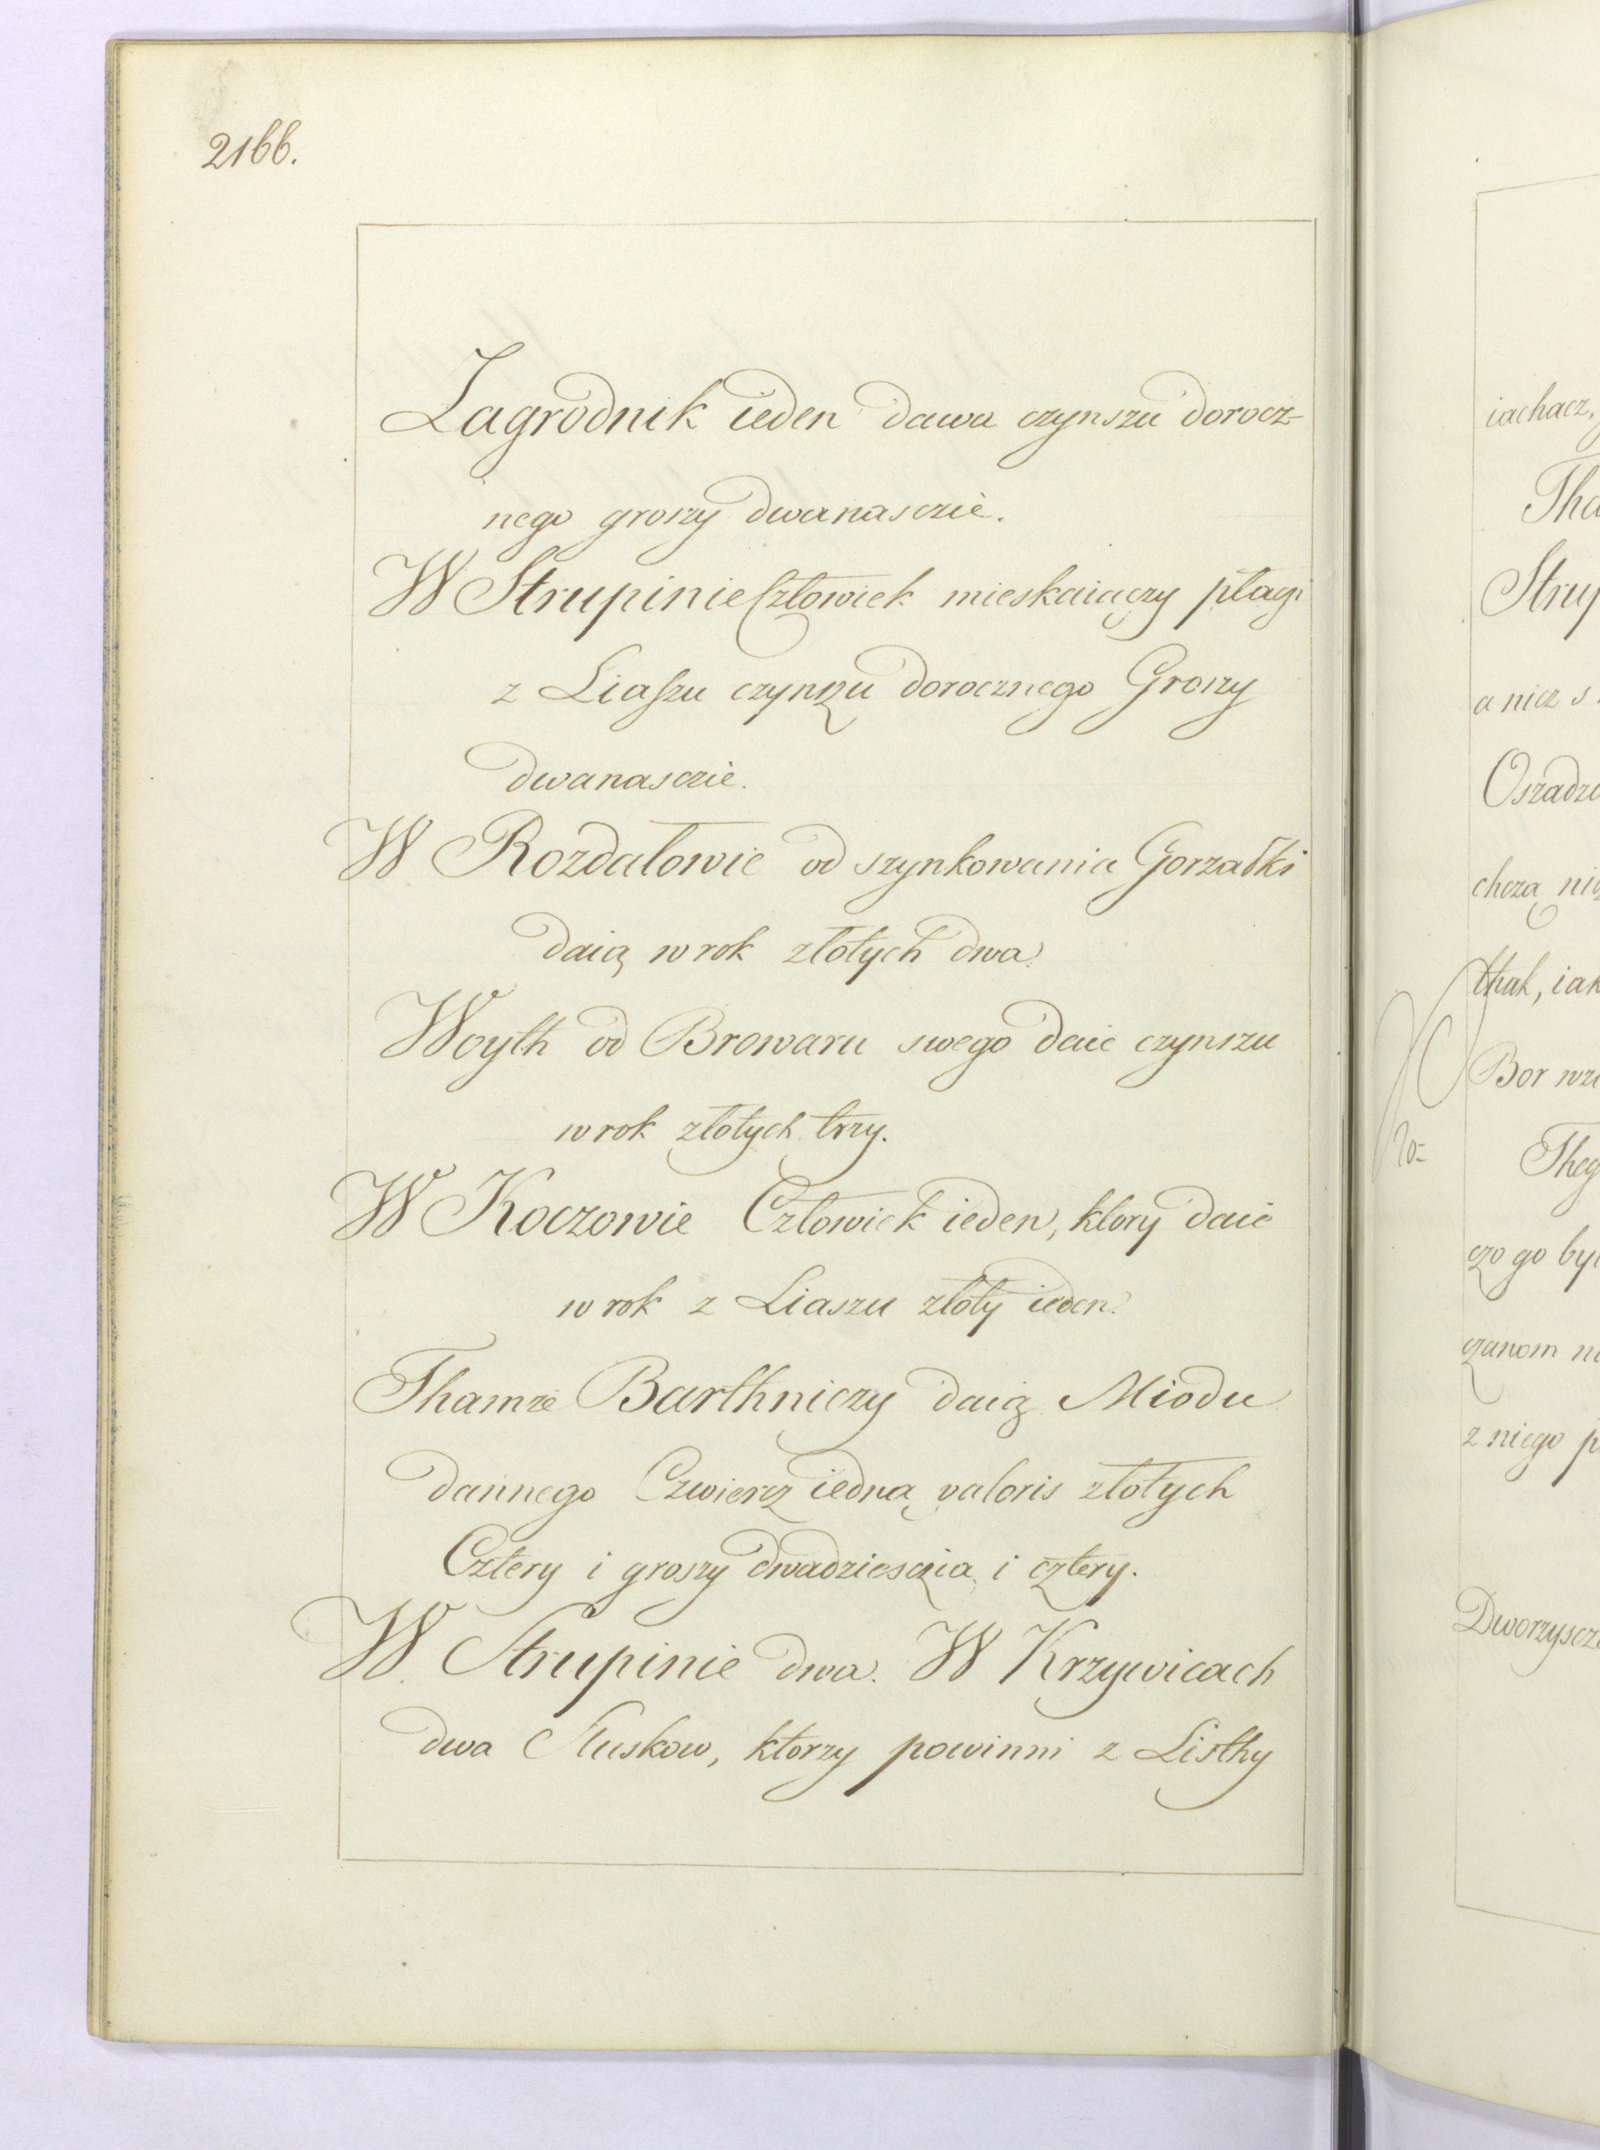 2166.
Zagrodnik ieden dawa czynszu dorocz-
nego groszy dwanasczie.
W Strupinie Człowiek mieskaiączy płagi
z Liaszu czynszu dorocznego Groszy
dwanasczie.
W Rozdałowie od szynkowania Gorzałki
daią w rok złotych dwa.
Woyth od Browaru swego daie czynszu
w rok złotych trzy.
W Koczowie Człowiek ieden, ktory daie
w rok z Liaszu złoty ieden.
Thamże Barthniczy daią Miodu
dannego Czwiercz iedną valoris złotych
Cztery i groszy dwadziesczia i cztery.
W Strupinie dwa. W Krzywicach
dwa Sluskow, ktorzy powinni z Listhy
iachacz,
Tha
Strup
a nicz s
Oszadz
chczą nic
thak, iak
Bor wz
Theg
czo go by
czanom n
z niego p
Dworzyscz